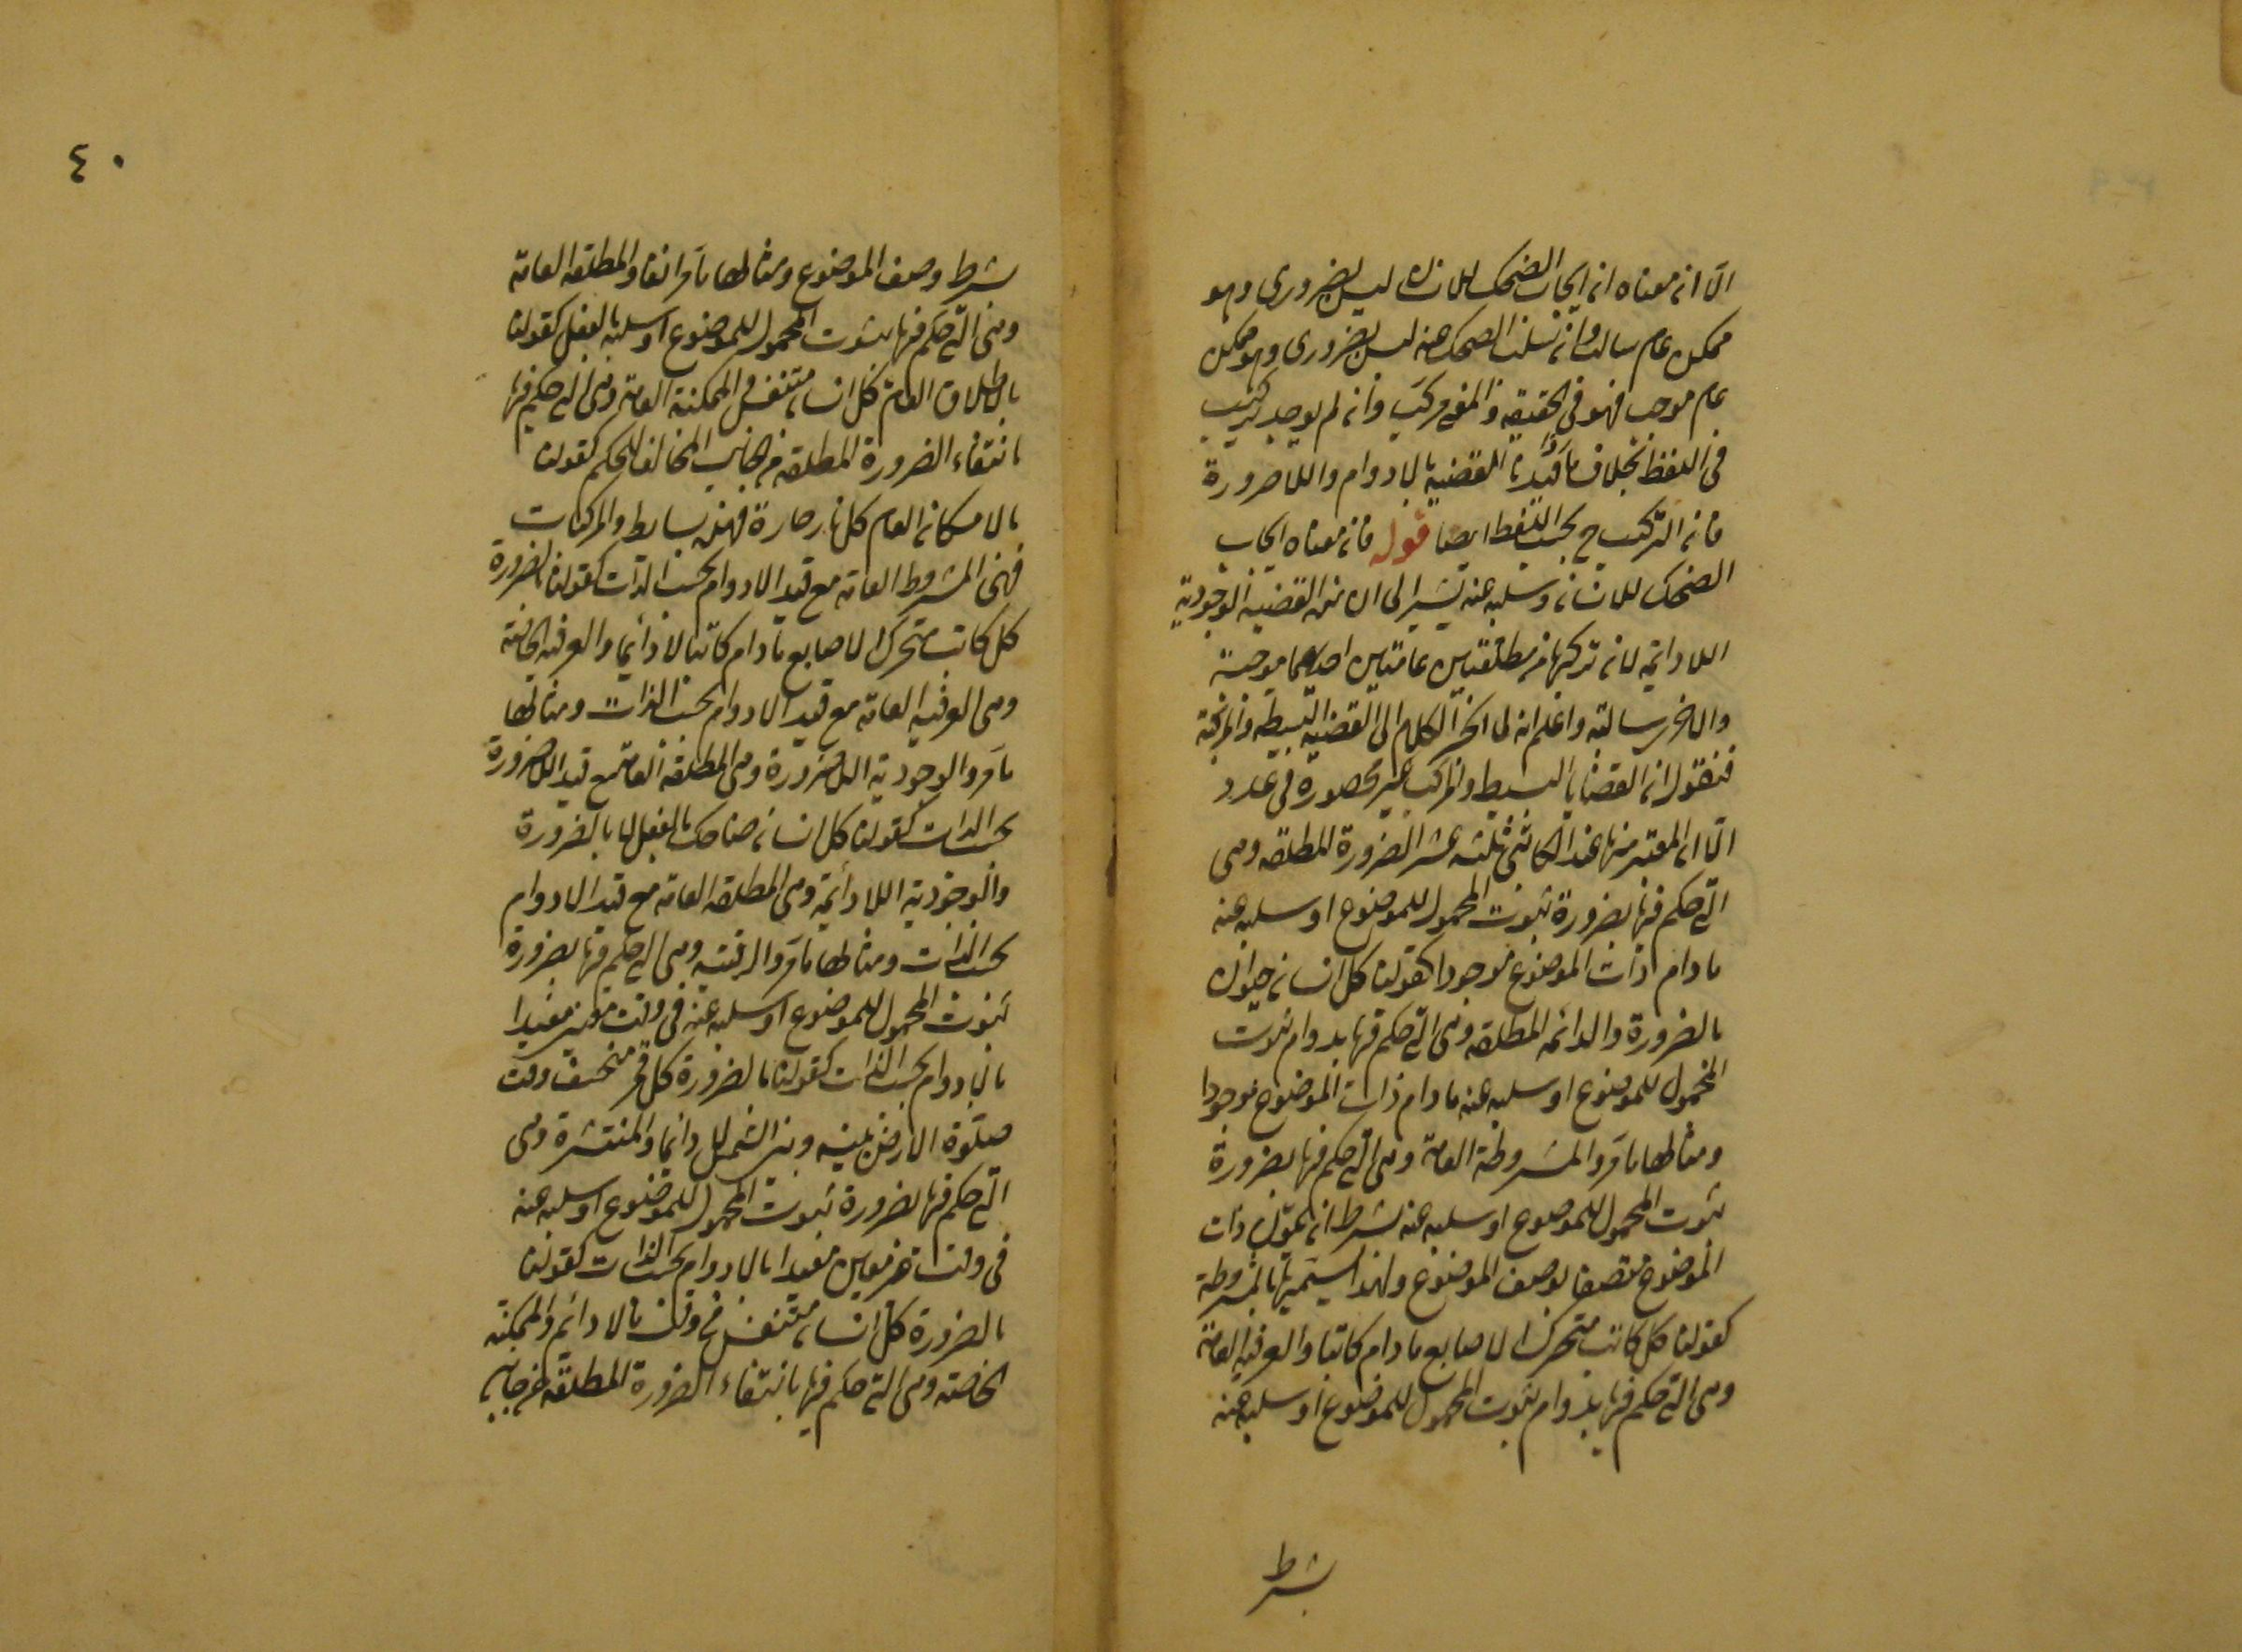 الا ان معناه ان ايجاب الضحك للانسان ليس بضروري وهو
ممكن عام سالب وان سلب الضحك عنه ليس بضروري وهو ممكن
عام موجب فهو في الحقيقة والمعنى مركب وان لم يوجد تركيب
في اللفظ بخلاف ما قيدنا القضية باللادوام واللاضرورة
فان التركيب ح بحسب اللفظ ايضا قوله فان معناه ايجاب
الضحك للانسان وسلبه عنه يشير الى ان القضية الوجودية
اللادائمة لان تركبها من مطلقتين عامتين احديهما موجبة
والاخرى سالبة واعلم انه لما انجر الكلام الى القضية البسيطة والمركبة
فنقول ان القضايا البسيط والمركب غير محصورة في عدد
الا ان المعتبر منها عند الكاتبي ثلثة عشر الضرورة المطلقة وهي
التي حكم فيها بضرورة ثبوت المحمول للموضوع او سلبه عنه
مادام ذات الموضوع موجودا كقولنا كل انسان حيوان
بالضرورة والدائمة المطلقة وهي التي حكم فيها بدوام ثبوت
المحمول للموضوع او سلبه عنه مادام ذات الموضوع موجودا
ومثالها ما مر والمشروطة العامة وهي التي حكم فيها بضرورة
ثبوت المحمول للموضوع او سلبه عنه بشرط ان يكون ذات
الموضوع متصفا بوصف الموضوع ولهذا سميتها بالمشروطة
كقولنا كل كاتب متحرك الاصابع مادام كاتبا والعرفية العامة
وهي التي حكم فيها بدوام ثبوت المحمول للموضوع او سلبه عنه
بشرط
٤٠
بشرط وصف الموضوع ومثالها ما مر انفا والمطلقة العامة
وهي التي حكم فيها بثبوت المحمول للموضوع او سلبه بالفعل كقولنا
بالاطلاق العام كل انسان متنفس والممكنة العامة وهي التي حكم فيها
بانتفاء الضرورة المطلقة من الجانب المخالف للحكم كقولنا
بالامكان العام كل نار حارة فهذه بسايط والمركبات
فهي المشروط العامة مع قيد اللادوام بحسب الذات كقولنا بالضرورة
كل كاتب متحرك الاصابع مادام كاتبا لا دائما والعرفية الخاصة
وهي العرفية العامة مع قيد اللادوام بحسب الذات ومثالها
ما مر والوجودية اللاضرورة وهي المطلقة العامة مع قيد اللاضرورة
بحسب الذات كقولنا كل انسان ضاحك بالفعل لا بالضرورة
والوجودية اللادائمة وهي المطلقة العامة مع قيد اللادوام
بحسب الذات ومثالها ما مر والوقتية وهي التي حكم فيها بضرورة
ثبوت المحمول للموضوع او سلبه عنه في وقت معين مقيدا
باللادوام بحسب الذات كقولنا بالضرورة كل قمر منخسف وقت
حيلولة الارض بينه وبين الشمس لا دائما والمنتشرة وهي
التي حكم فيها بضرورة ثبوت المحمول للموضوع او سلبه عنه
في وقت غير معين مقيدا باللادوام بحسب الذات كقولنا
بالضرورة كل انسان متنفس في وقت ما لا دائم والممكنة
الخاصة وهي التي حكم فيها بانتفاء الضرورة المطلقة عن جانبي